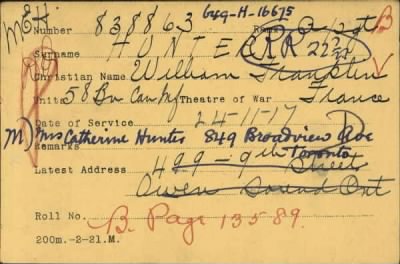 McH. 649-H-16675
Number 838863 Rank A/Sgt B
Surname HUNTER RR 2232 V
Christian Name William Franklin
Unit 58 Bn Can Inf Theatre of War France
Date of Service 24-11-17
M) Mrs Catherine Hunter 849 Broadview Ave
Remarks Toronto
Latest Address 499 - 9th Street
Owen Sound Ont
Roll No. B. Page 13589.
200m.-2-21.M.